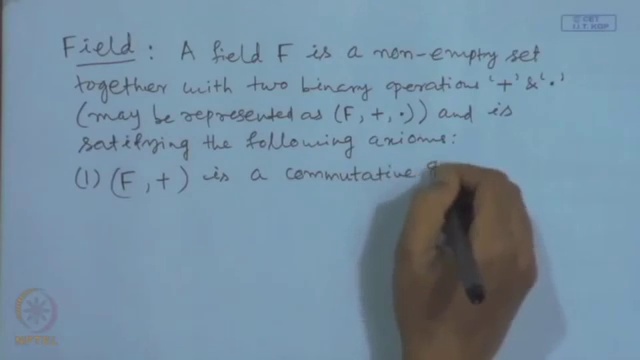 © CET
I.I.T. KGP
Field : A field F is a non-empty set
together with two binary operations '+' & '·'
(may be represented as (F, +, ·)) and is
satisfying the following axioms:
(1) (F, +) is a commutative g
NPTEL